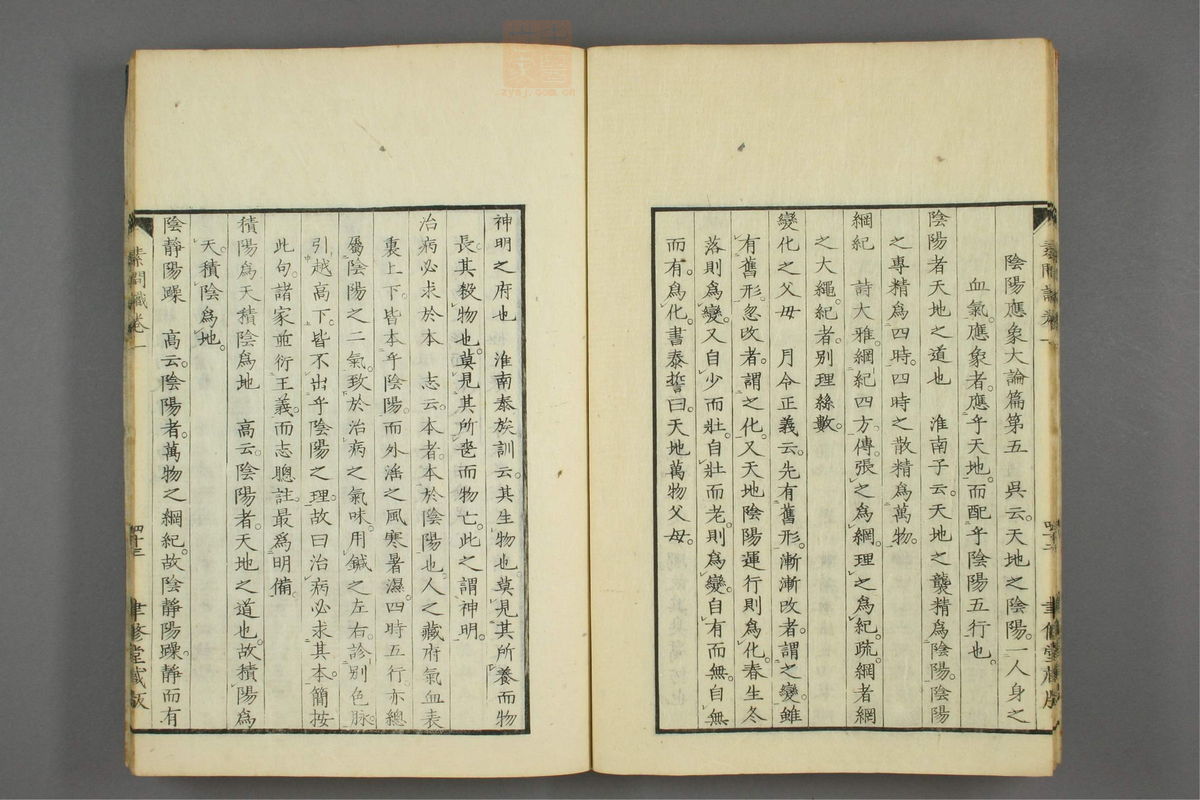 陰陽應象大論篇第五　吳云。天地之陰陽。一人身之
血氣。應象者。應乎天地。而配乎陰陽五行也。
陰陽者天地之道也　淮南子云。天地之襲精爲陰陽。陰陽
之專精爲四時。四時之散精爲萬物。
綱紀　詩大雅。綱紀四方。傳。張之爲綱。理之爲紀。疏。綱者網
之大繩。紀者。別理絲數。
變化之父母　月令正義云。先有舊形。漸漸改者。謂之變。雖
有舊形。忽改者。謂之化。又天地陰陽運行則爲化。春生冬
落則爲變。又自少而壯。自壯而老。則爲變。自有而無。自無
而有。爲化。書泰誓曰。天地萬物父母。
神明之府也　淮南泰族訓云。其生物也。莫見其所養而物
長。其殺物也。莫見其所喪而物亡。此之謂神明。
治病必求於本　志云。本者。本於陰陽也。人之藏府氣血表
裏上下。皆本乎陰陽。而外淫之風寒暑濕。四時五行。亦總
屬陰陽之二氣。致於治病之氣味。用鍼之左右。診別色脉。
引越高下。皆不出乎陰陽之理。故曰治病必求其本。簡按
此句。諸家並衍王義。而志聰註。最爲明備。
積陽爲天積陰爲地　高云。陰陽者。天地之道也。故積陽爲
天。積陰爲地。
陰靜陽躁　高云。陰陽者。萬物之綱紀。故陰靜陽躁。靜而有
素問識卷一
四十三
聿修堂藏版
zysj.com.cn